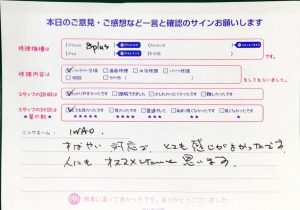 本日のご意見・ご感想など一言と確認のサインお願いします
修理機種は
iPhone 8plus
Android
iPad
その他
修理内容は
バッテリー交換 画面修理 水没修理 パーツ修理
相談 その他 をしてもらいました。
スタッフの説明は
わかりやすかったです 理解できました 少しわかりにくかったです 難しかったです
スタッフの対応は
★星の数★
とても良かったです 良かったです 普通でした あまり良くなかったです 良くなかったです
ニックネーム: IWAO
すばやい対応で、とても感じがよかったです。
人にもオススメしたいと思います。
無事に直って良かったです。ありがとうございました